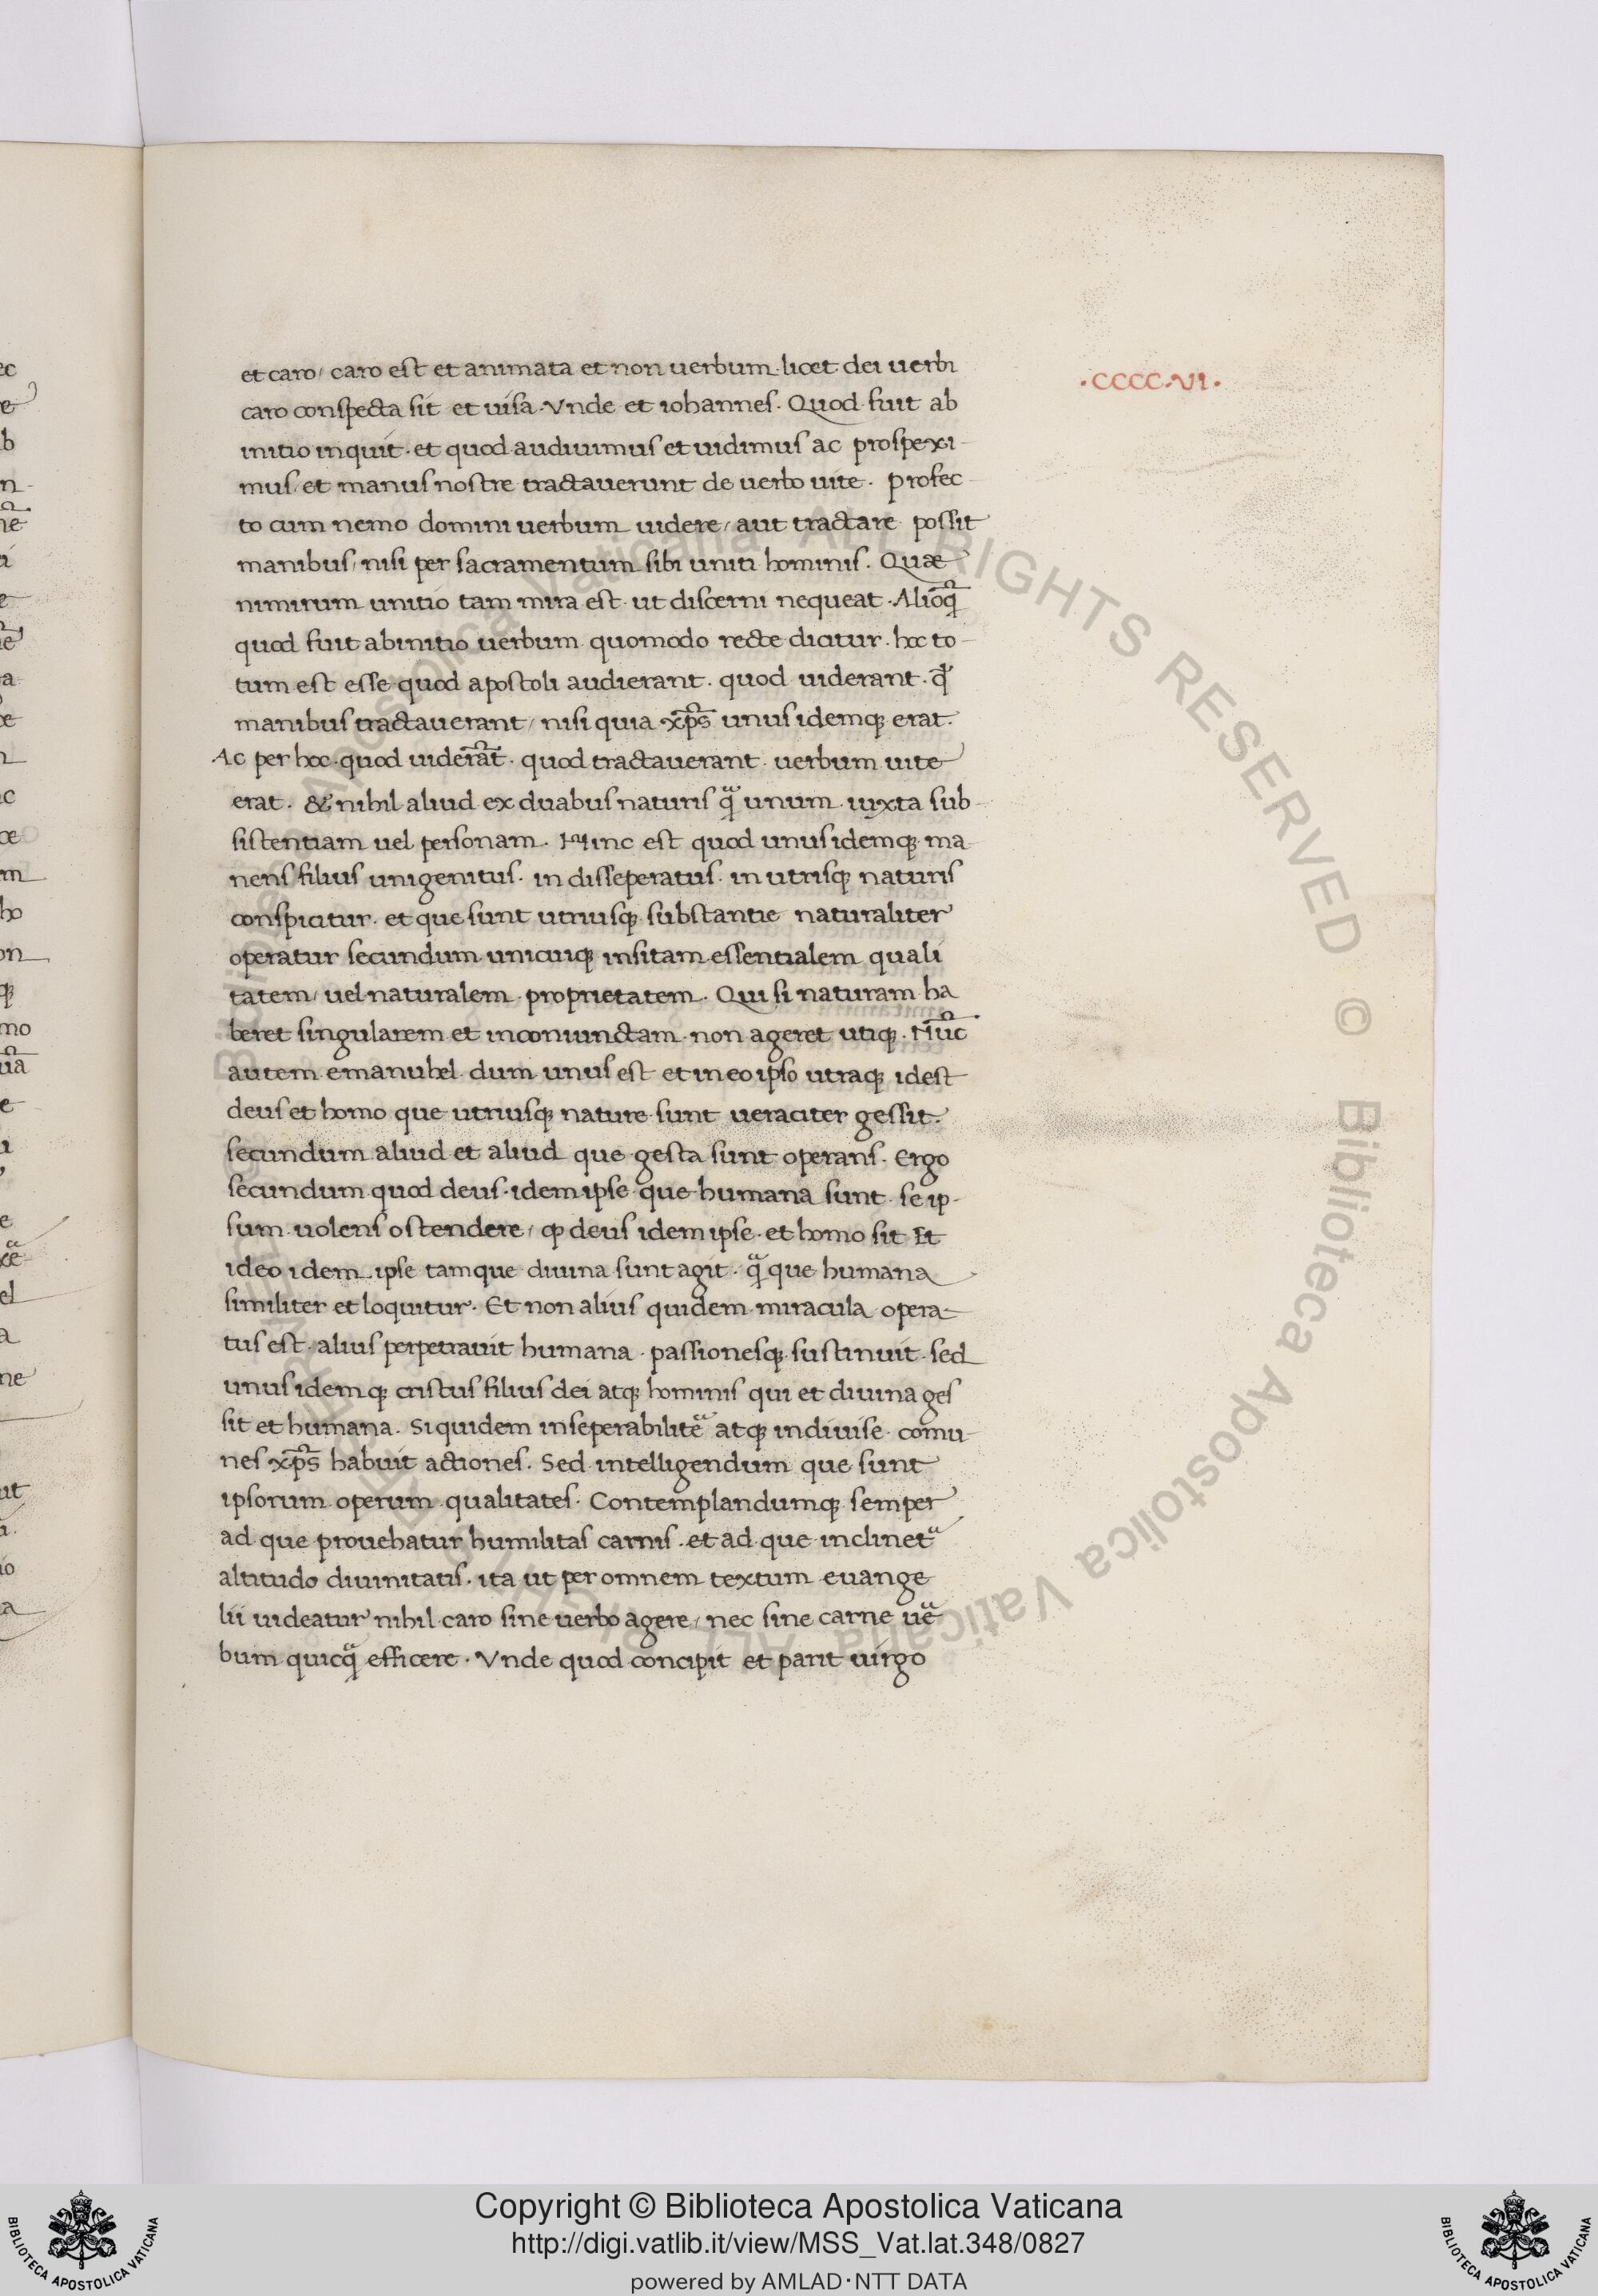 et caro / caro est et animata et non uerbum licet dei uerbi
·CCCC·VI·
caro conspecta sit et uisa · Vnde et iohannes · Quod fuit ab
initio inquit · et quod audiuimus et uidimus ac prospexi-
mus / et manus nostre tractauerunt de uerbo uite · Profec-
to cum nemo domini uerbum uidere / aut tractare possit
manibus / nisi per sacramentum sibi uniti hominis · Quae
nimirum unitio tam mira est · ut discerni nequeat · Alioq̄
quod fuit abinitio uerbum quomodo recte dicitur · hoc to-
tum est esse quod apostoli audierant · quod uiderant · qđ
manibus tractauerant / nisi quia xp̄s unus idemq; erat ·
Ac per hoc · quod uiderāt · quod tractauerant · uerbum uite
erat · & nihil aliud ex duabus naturis qͣ unum iuxta sub-
sistentiam uel personam · Hinc est quod unus idemq; ma-
nens filius unigenitus · in disseperatus · in utrisq; naturis
conspicitur · et que sunt utriusq; substantie naturaliter
operatur secundum unicuiq; insitam essentialem quali
tatem / uel naturalem proprietatem · Qui si naturam ha
beret singularem et inconiunctam · non ageret utiq; · Nūc
autem emanuhel dum unus est et in eo ipso utraq; idest
deus et homo que utriusq; nature sunt ueraciter gessit ·
secundum aliud et aliud que gesta sunt operans · Ergo
secundum quod deus · idem ipse que humana sunt · se ip-
sum uolens ostendere / ꝙ deus idem ipse · et homo sit · Et
ideo idem ipse tamque diuina sunt agit · qͣ que humana
similiter et loquitur · Et non alius quidem miracula opera-
tus est · alius perpetrauit humana · passionesq; sustinuit · sed
unus idemq; cristus filius dei atq; hominis qui et diuina ges
sit et humana · Siquidem inseperabiliteͣ atq; indiuise comu-
nes xp̄s habuit actiones · Sed intelligendum que sunt
ipsorum operum qualitates · Contemplandumq; semper
ad que prouehatur humilitas carnis · et ad que inclinetͣ
altitudo diuinitatis · ita ut per omnem textum euange
lii uideatur nihil caro sine uerbo agere / nec sine carne ueͣ
bum quicqͣ efficere · Vnde quod concipit et parit uirgo
Copyright © Biblioteca Apostolica Vaticana
http://digi.vatlib.it/view/MSS_Vat.lat.348/0827
powered by AMLAD·NTT DATA